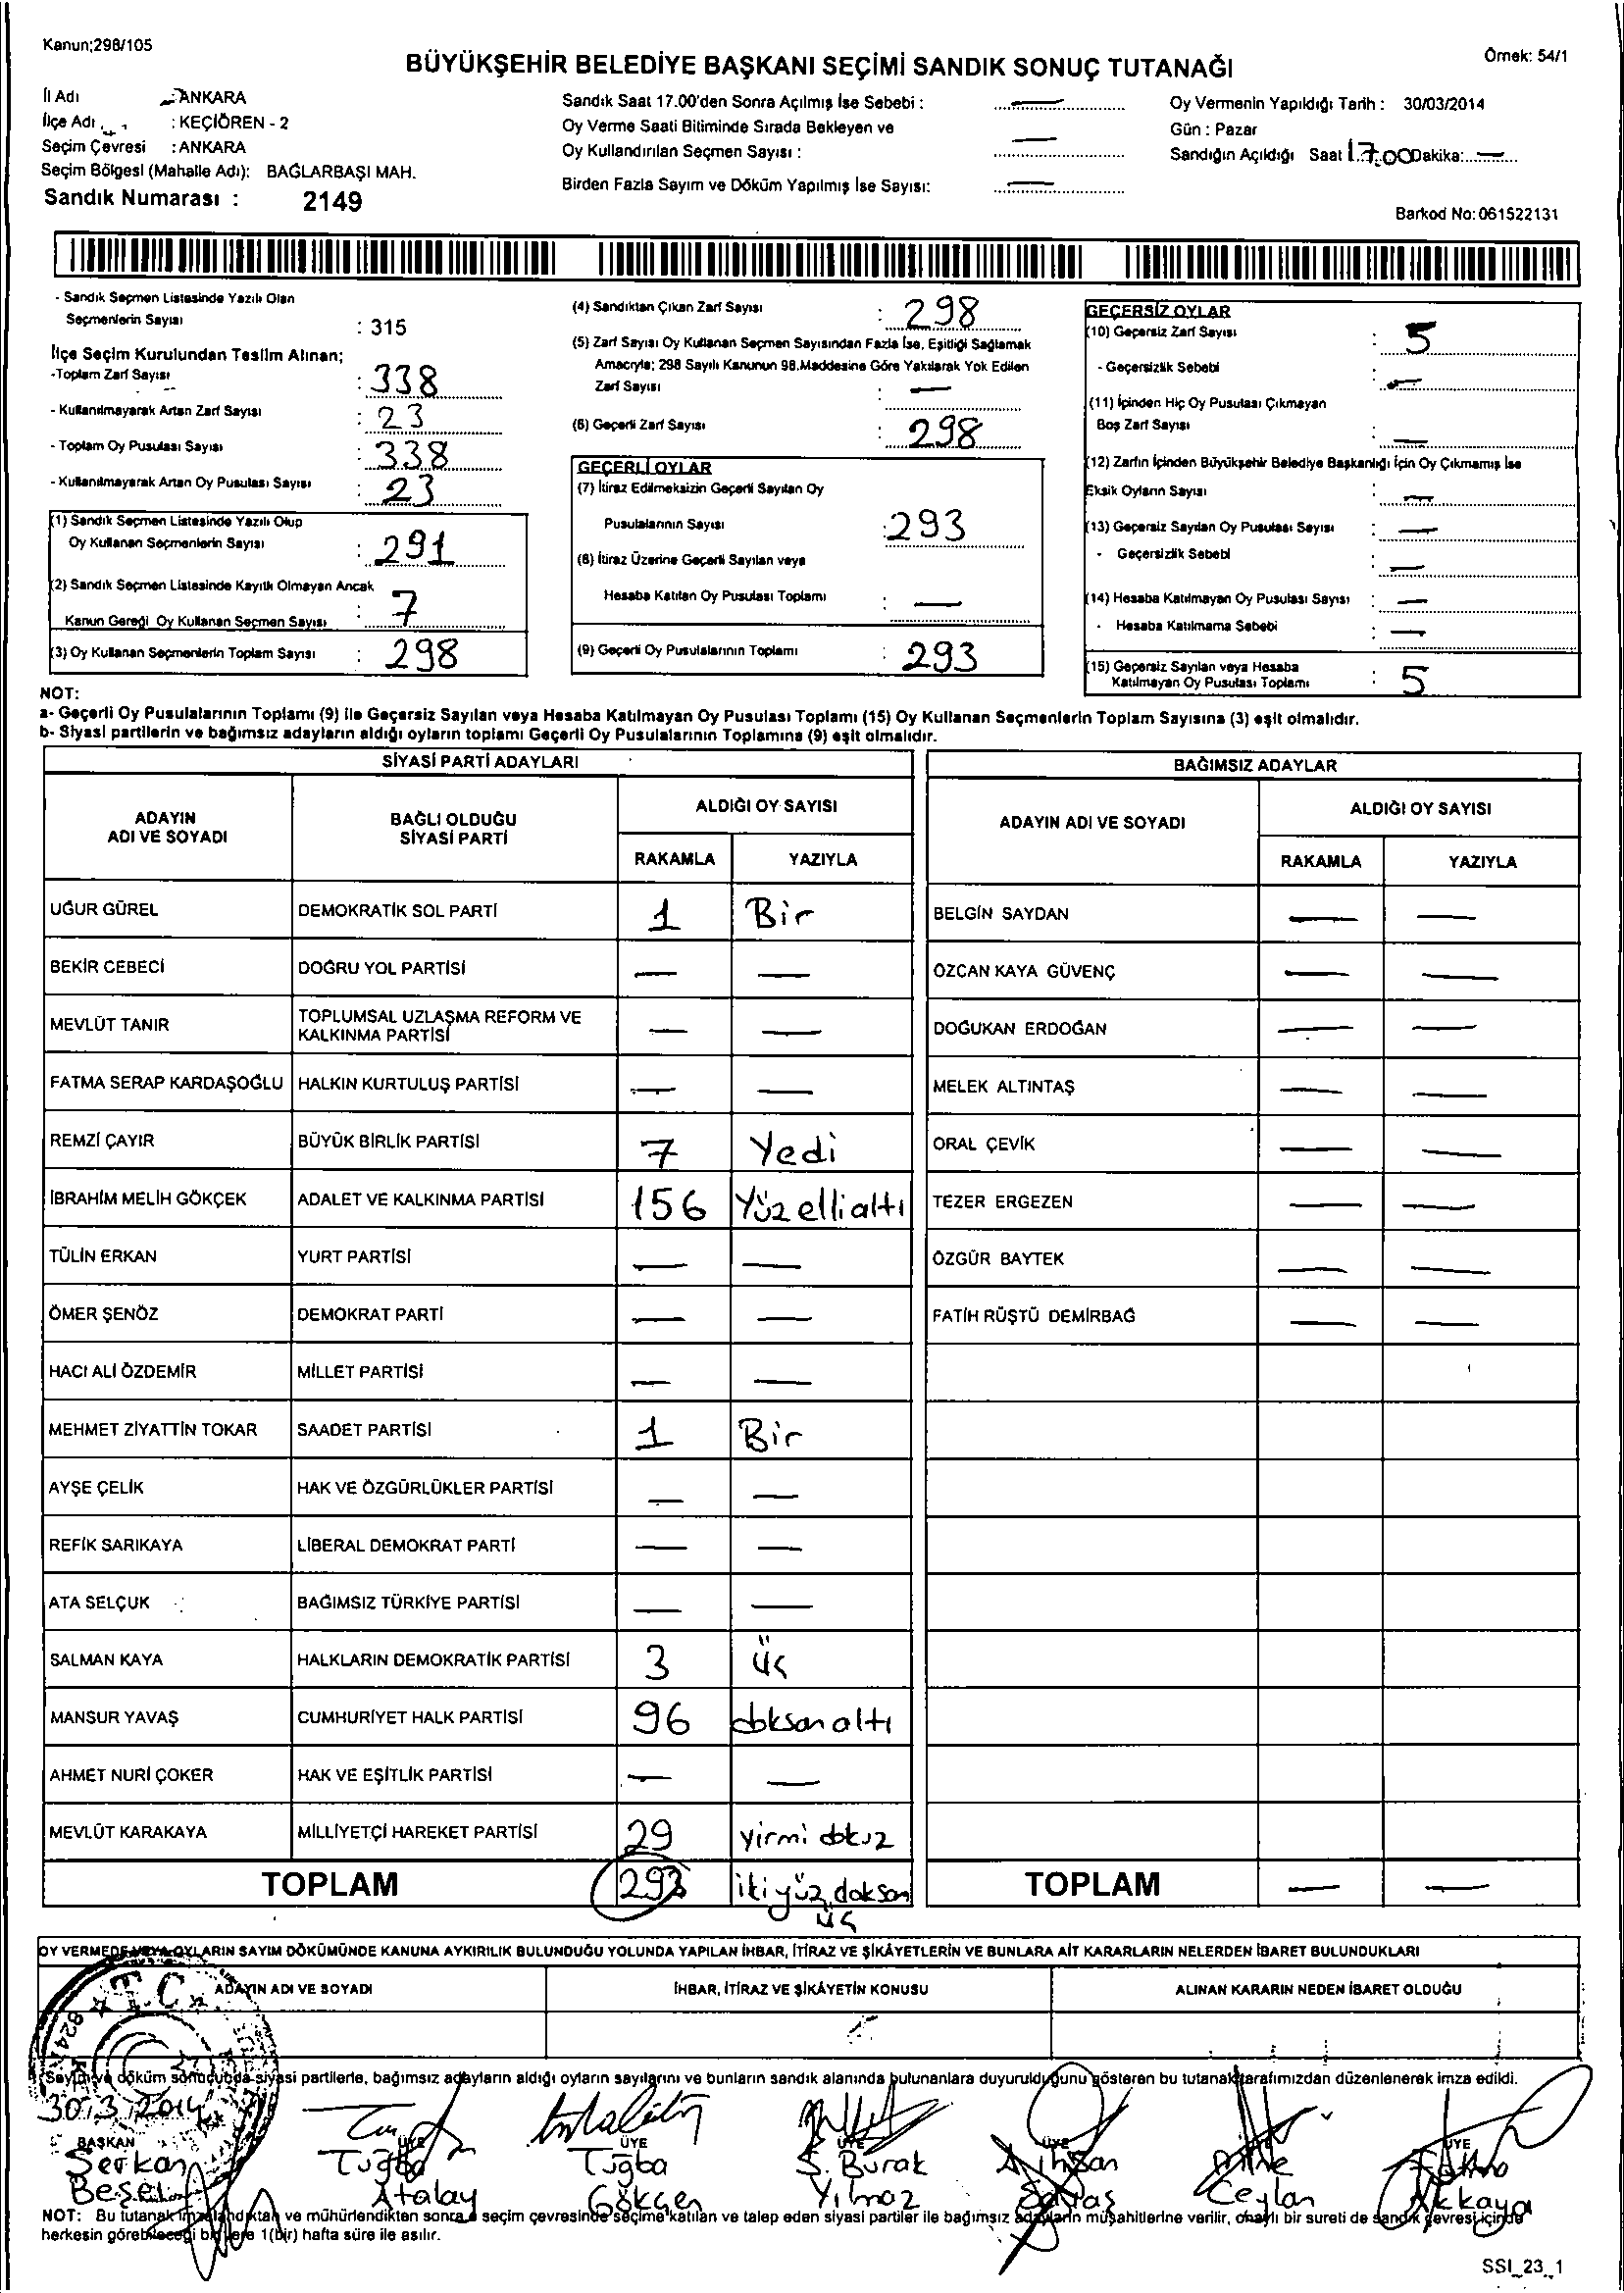 Kanun;298/105
Örnek: 54/1
BÜYÜKŞEHİR BELEDİYE BAŞKANI SEÇİMİ SANDIK SONUÇ TUTANAĞI
İl Adı : ANKARA
İlçe Adı : KEÇİÖREN - 2
Seçim Çevresi : ANKARA
Seçim Bölgesi (Mahalle Adı): BAĞLARBAŞI MAH.
Sandık Numarası : 2149
Sandık Saat 17.00'den Sonra Açılmış İse Sebebi : —
Oy Verme Saati Bitiminde Sırada Bekleyen ve
Oy Kullandırılan Seçmen Sayısı : —
Birden Fazla Sayım ve Döküm Yapılmış İse Sayısı: —
Oy Vermenin Yapıldığı Tarih : 30/03/2014
Gün : Pazar
Sandığın Açıldığı Saat 17.00 Dakika: —
Barkod No: 061522131
- Sandık Seçmen Listesinde Yazılı Olan
Seçmenlerin Sayısı : 315
İlçe Seçim Kurulundan Teslim Alınan;
-Toplam Zarf Sayısı : 338
- Kullanılmayarak Artan Zarf Sayısı : 23
- Toplam Oy Pusulası Sayısı : 338
- Kullanılmayarak Artan Oy Pusulası Sayısı : 23
(1) Sandık Seçmen Listesinde Yazılı Olup
Oy Kullanan Seçmenlerin Sayısı : 291
(2) Sandık Seçmen Listesinde Kayıtlı Olmayan Ancak
Kanun Gereği Oy Kullanan Seçmen Sayısı : 7
(3) Oy Kullanan Seçmenlerin Toplam Sayısı : 298
(4) Sandıktan Çıkan Zarf Sayısı : 298
(5) Zarf Sayısı Oy Kullanan Seçmen Sayısından Fazla İse, Eşitliği Sağlamak
Amacıyla; 298 Sayılı Kanunun 98.Maddesine Göre Yakılarak Yok Edilen
Zarf Sayısı : —
(6) Geçerli Zarf Sayısı : 298
GEÇERLİ OYLAR
(7) İtiraz Edilmeksizin Geçerli Sayılan Oy
Pusulalarının Sayısı : 293
(8) İtiraz Üzerine Geçerli Sayılan veya
Hesaba Katılan Oy Pusulası Toplamı : —
(9) Geçerli Oy Pusulalarının Toplamı : 293
GEÇERSİZ OYLAR
(10) Geçersiz Zarf Sayısı : 5
- Geçersizlik Sebebi : —
(11) İçinden Hiç Oy Pusulası Çıkmayan
Boş Zarf Sayısı : —
(12) Zarfın İçinden Büyükşehir Belediye Başkanlığı İçin Oy Çıkmamış İse
Eksik Oyların Sayısı : —
(13) Geçersiz Sayılan Oy Pusulası Sayısı : —
- Geçersizlik Sebebi : —
(14) Hesaba Katılmayan Oy Pusulası Sayısı : —
- Hesaba Katılmama Sebebi : —
(15) Geçersiz Sayılan veya Hesaba
Katılmayan Oy Pusulası Toplamı : 5
NOT:
a- Geçerli Oy Pusulalarının Toplamı (9) ile Geçersiz Sayılan veya Hesaba Katılmayan Oy Pusulası Toplamı (15) Oy Kullanan Seçmenlerin Toplam Sayısına (3) eşit olmalıdır.
b- Siyasi partilerin ve bağımsız adayların aldığı oyların toplamı Geçerli Oy Pusulalarının Toplamına (9) eşit olmalıdır.
SİYASİ PARTİ ADAYLARI
ADAYIN ADI VE SOYADI BAĞLI OLDUĞU SİYASİ PARTİ ALDIĞI OY SAYISI
RAKAMLA YAZIYLA
UĞUR GÜREL DEMOKRATİK SOL PARTİ 1 Bir
BEKİR CEBECİ DOĞRU YOL PARTİSİ — —
MEVLÜT TANIR TOPLUMSAL UZLAŞMA REFORM VE KALKINMA PARTİSİ — —
FATMA SERAP KARDAŞOĞLU HALKIN KURTULUŞ PARTİSİ — —
REMZİ ÇAYIR BÜYÜK BİRLİK PARTİSİ 7 Yedi
İBRAHİM MELİH GÖKÇEK ADALET VE KALKINMA PARTİSİ 156 Yüz elli altı
TÜLİN ERKAN YURT PARTİSİ — —
ÖMER ŞENÖZ DEMOKRAT PARTİ — —
HACI ALİ ÖZDEMİR MİLLET PARTİSİ — —
MEHMET ZİYATTİN TOKAR SAADET PARTİSİ 1 Bir
AYŞE ÇELİK HAK VE ÖZGÜRLÜKLER PARTİSİ — —
REFİK SARIKAYA LİBERAL DEMOKRAT PARTİ — —
ATA SELÇUK BAĞIMSIZ TÜRKİYE PARTİSİ — —
SALMAN KAYA HALKLARIN DEMOKRATİK PARTİSİ 3 üç
MANSUR YAVAŞ CUMHURİYET HALK PARTİSİ 96 doksan altı
AHMET NURİ ÇOKER HAK VE EŞİTLİK PARTİSİ — —
MEVLÜT KARAKAYA MİLLİYETÇİ HAREKET PARTİSİ 29 yirmi dokuz
TOPLAM 293 iki yüz doksan üç
BAĞIMSIZ ADAYLAR
ADAYIN ADI VE SOYADI ALDIĞI OY SAYISI
RAKAMLA YAZIYLA
BELGİN SAYDAN — —
ÖZCAN KAYA GÜVENÇ — —
DOĞUKAN ERDOĞAN — —
MELEK ALTINTAŞ — —
ORAL ÇEVİK — —
TEZER ERGEZEN — —
ÖZGÜR BAYTEK — —
FATİH RÜŞTÜ DEMİRBAĞ — —
TOPLAM — —
OY VERMEDE VEYA OYLARIN SAYIM DÖKÜMÜNDE KANUNA AYKIRILIK BULUNDUĞU YOLUNDA YAPILAN İHBAR, İTİRAZ VE ŞİKÂYETLERİN VE BUNLARA AİT KARARLARIN NELERDEN İBARET BULUNDUKLARI
ADAYIN ADI VE SOYADI İHBAR, İTİRAZ VE ŞİKÂYETİN KONUSU ALINAN KARARIN NEDEN İBARET OLDUĞU
T.C.
Sayım ve döküm sonucunda siyasi partilerle, bağımsız adayların aldığı oyların sayılarını ve bunların sandık alanında bulunanlara duyurulduğunu gösteren bu tutanak tarafımızdan düzenlenerek imza edildi.
30.3.2014
BAŞKAN ÜYE ÜYE ÜYE ÜYE ÜYE
Serkan Tuğba Tuğba S. Burak Mine Fatma
Atalay Gökçen Yılmaz Savaş Ceylan Akkaya
NOT: Bu tutanak imzalandıktan ve mühürlendikten sonra seçim çevresinde seçime katılan ve talep eden siyasi partiler ile bağımsız adayların müşahitlerine verilir, onaylı bir sureti de sandık çevresi içinde
herkesin görebileceği bir yere 1(bir) hafta süre ile asılır.
SSI_23_1